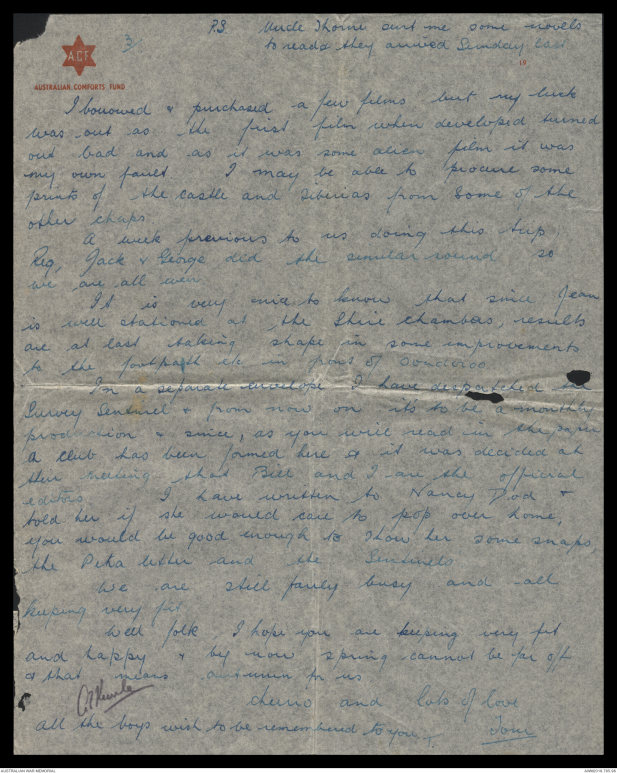 P.S. Uncle Thorne sent me some novels
to read & they arrived Sunday last
3/
A.C.F.
AUSTRALIAN COMFORTS FUND
19
I borrowed & purchased a few films but my luck
was out as the first film when developed turned
out bad and as it was some alien film it was
my own fault. I may be able to procure some
prints of the castle and Siberias from some of the
other chaps.
A week previous to us doing this trip,
Reg, Jack & George did the similar round so
we are all even
It is very nice to know that since Jean
is well stationed at the Shire chambers, results
are at last taking shape in some improvements
to the footpath etc in front of Oondooroo.
In a separate envelope I have despatched
Survey Sentinel & from now on its to be a monthly
production & since, as you will read in the paper
a club has been formed here & it was decided at
their meeting that Bill and I are the official
editors. I have written to Nancy Dod &
told her if she would care to pop over home,
you would be good enough to show her some snaps,
the Petra letter and the Sentinels
We are still fairly busy and all
keeping very fit
Well folk I hope you are keeping very fit
and happy & by now spring cannot be far off
& that means autumn for us
cheerio and lots of love
all the boys wish to be remembered to you
Tom
AUSTRALIAN WAR MEMORIAL